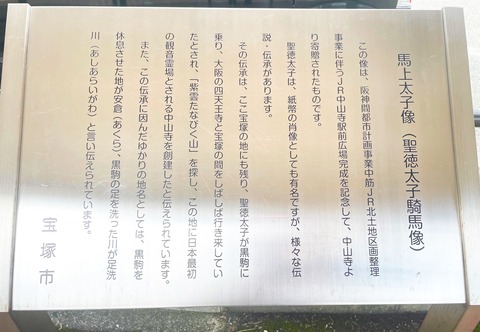 馬上太子像(聖徳太子騎馬像)
この像は、阪神間都市計画事業中筋JR北土地区画整理
事業に伴うJR中山寺駅前広場完成を記念して、中山寺よ
り寄贈されたものです。
聖徳太子は、紙幣の肖像としても有名ですが、様々な伝
説・伝承があります。
その伝承は、ここ宝塚の地にも残り、聖徳太子が黒駒に
乗り、大阪の四天王寺と宝塚の間をしばしば行き来してい
たとされ、「紫雲たなびく山」を探し、この地に日本最初
の観音霊場とされる中山寺を創建したと伝えられています。
また、この伝承に因んだゆかりの地名としては、黒駒を
休息させた地が安倉(あくら)、黒駒の足を洗った川が足洗
川(あしあらいがわ)と言い伝えられています。
宝塚市